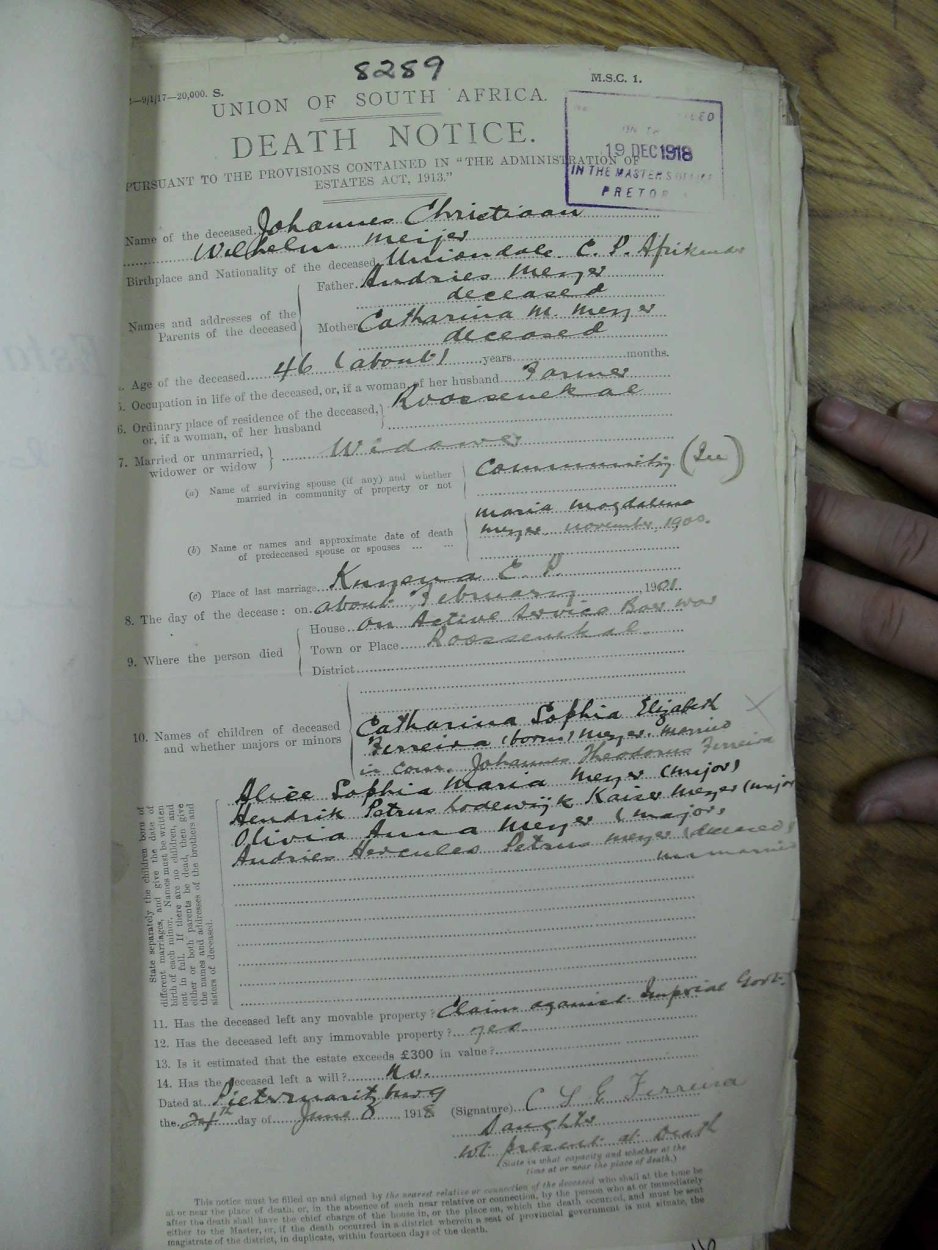 8289
M.S.C. 1.
—9/1/17—20,000. S.
UNION OF SOUTH AFRICA.
DEATH NOTICE.
PURSUANT TO THE PROVISIONS CONTAINED IN "THE ADMINISTRATION OF
ESTATES ACT, 1913."
19 DEC 1918
IN THE MASTERS OFFICE
PRETOR
Name of the deceased Johannes Christiaan
Wilhelm Meijer
Birthplace and Nationality of the deceased Uniondale C. P. Afrikander
Names and addresses of the
Parents of the deceased
Father Andries Meyer
deceased
Mother Catharina M. Meyer
deceased
Age of the deceased 46 (about) years months.
5. Occupation in life of the deceased, or, if a woman, of her husband Farmer
6. Ordinary place of residence of the deceased,
or, if a woman, of her husband
Roossenekal
7. Married or unmarried,
widower or widow
Widower
(a) Name of surviving spouse (if any) and whether
married in community of property or not
Community (In)
(b) Name or names and approximate date of death
of predeceased spouse or spouses ... ...
Maria Magdalena
Meyer November 1900.
(c) Place of last marriage Knysna C. P
8. The day of the decease: on about February 1901
9. Where the person died
House on Active Service Boer war
Town or Place Roossenekal.
District
10. Names of children of deceased
and whether majors or minors
Catharina Sophia Elizabeth
Ferreira (born) Meyer. married
in com. Johannes Theodorus Ferreira
Alice Sophia Maria Meyer (major)
Hendrik Petrus Lodewijk Kaiser Meyer (major
Olivia Anna Meyer (major)
Andries Hercules Petrus Meyer (deceased)
unmarried
State separately the children born of
different marriages, and give the date of
birth of each minor. Names must be written
out in full. If there are no children, and
either or both parents be dead, then give
the names and addresses of the brothers and
sisters of deceased.
11. Has the deceased left any movable property? Claim against Imperial Govt.
12. Has the deceased left any immovable property? yes
13. Is it estimated that the estate exceeds £300 in value?
14. Has the deceased left a will? No.
Dated at Pietermaritzburg
the day of June 1918 (Signature) C S E Ferreira
Daughter
not present at Death
(State in what capacity and whether at the
time at or near the place of death.)
This notice must be filled up and signed by the nearest relative or connection of the deceased who shall at the time be
at or near the place of death, or, in the absence of such near relative or connection, by the person who at or immediately
after the death shall have the chief charge of the house in, or the place on, which the death occurred, and must be sent
either to the Master, or, if the death occurred in a district wherein a seat of provincial government is not situate, the
magistrate of the district, in duplicate, within fourteen days of the death.